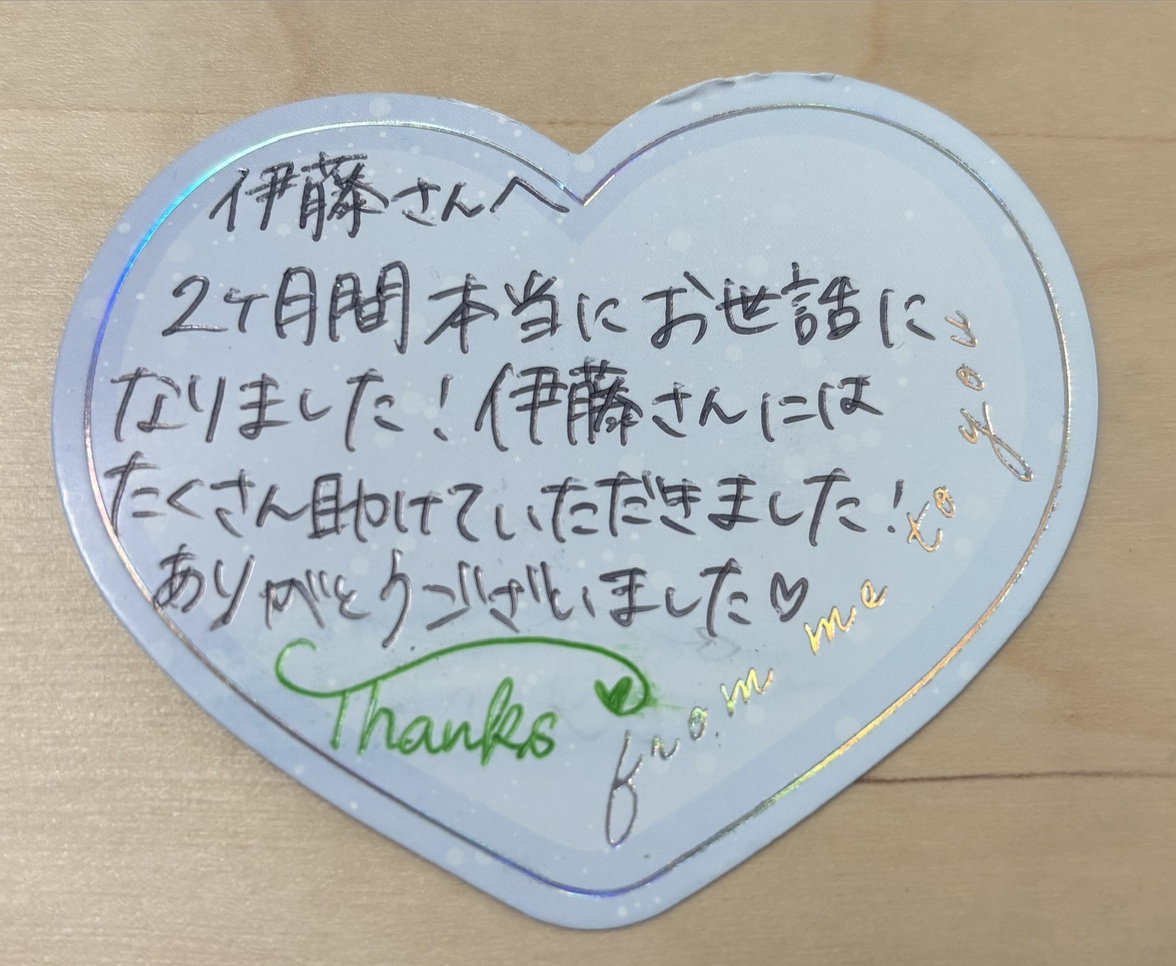 伊藤さんへ
2ヶ月間本当にお世話に
なりました！伊藤さんには
たくさん助けていただきました！
ありがとうございました♡
Thanks
from me to you